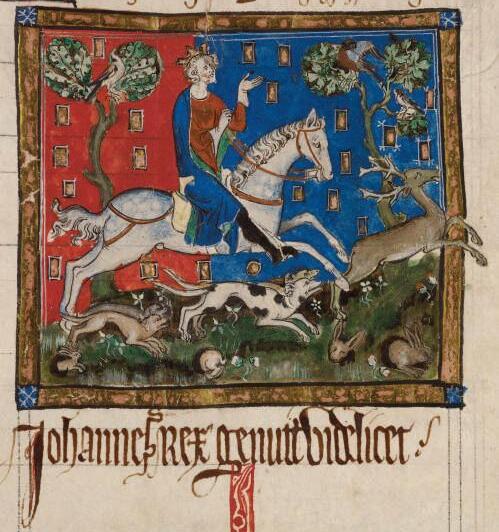 Johannes Rex genuit videlicet